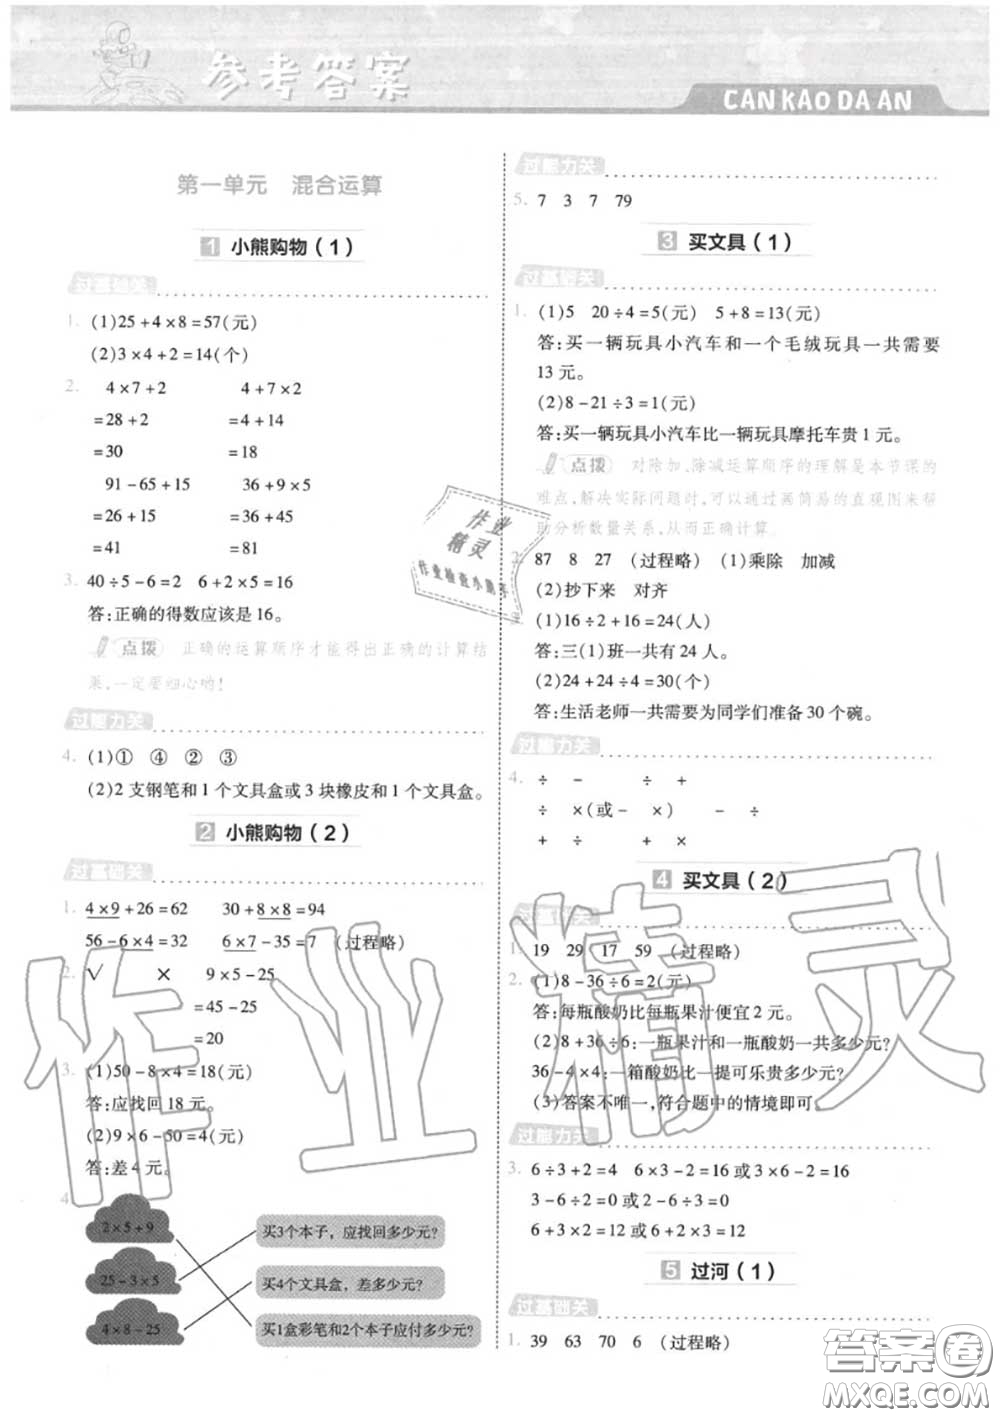 参考答案
CAN KAO DA AN
第一单元 混合运算
1 小熊购物(1)
过基础关
1. (1)25+4×8=57(元)
(2)3×4+2=14(个)
2. 4×7+2 4+7×2
=28+2 =4+14
=30 =18
91-65+15 36+9×5
=26+15 =36+45
=41 =81
3. 40÷5-6=2 6+2×5=16
答:正确的得数应该是16。
点拨 正确的运算顺序才能得出正确的计算结
果,一定要细心哟!
过能力关
4. (1)① ④ ② ③
(2)2支钢笔和1个文具盒或3块橡皮和1个文具盒。
2 小熊购物(2)
过基础关
1. 4×9+26=62 30+8×8=94
56-6×4=32 6×7-35=7 (过程略)
2. √ × 9×5-25
=45-25
=20
3. (1)50-8×4=18(元)
答:应找回18元。
(2)9×6-50=4(元)
答:差4元。
4.
2×5+9
25-3×5
4×8-25
买3个本子，应找回多少元?
买4个文具盒，差多少元?
买1盒彩笔和2个本子应付多少元?
过能力关
5. 7 3 7 79
3 买文具(1)
过基础关
1. (1)5 20÷4=5(元) 5+8=13(元)
答:买一辆玩具小汽车和一个毛绒玩具一共需要
13元。
(2)8-21÷3=1(元)
答:买一辆玩具小汽车比一辆玩具摩托车贵1元。
点拨 对除加、除减运算顺序的理解是本节课的
难点,解决实际问题时,可以通过画简易的直观图来帮
助分析数量关系,从而正确计算。
2. 87 8 27 (过程略) (1)乘除 加减
(2)抄下来 对齐
3. (1)16÷2+16=24(人)
答:三(1)班一共有24人。
(2)24+24÷4=30(个)
答:生活老师一共需要为同学们准备30个碗。
过能力关
4. ÷ - ÷ +
÷ ×(或- ×) - ÷
+ ÷ + ×
4 买文具(2)
过基础关
1. 19 29 17 59 (过程略)
2. (1)8-36÷6=2(元)
答:每瓶酸奶比每瓶果汁便宜2元。
(2)8+36÷6:一瓶果汁和一瓶酸奶一共多少元?
36-4×4:一箱酸奶比一提可乐贵多少元?
(3)答案不唯一,符合题中的情境即可。
过能力关
3. 6÷3+2=4 6×3-2=16 或 3×6-2=16
3-6÷2=0 或 2-6÷3=0
6+3×2=12 或 6+2×3=12
5 过河(1)
过基础关
1. 39 63 70 6 (过程略)
作业
精灵
作业检查小助手
作业精灵
答案圈
MXQE.COM